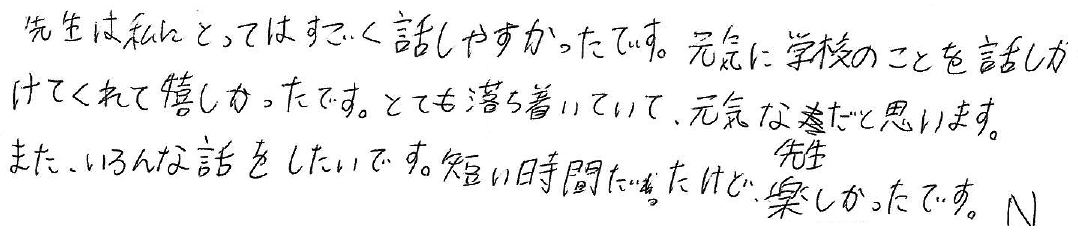 先生は私にとってはすごく話しやすかったです。元気に学校のことを話しか
けてくれて嬉しかったです。とても落ち着いていて、元気な先生だと思います。
また、いろんな話をしたいです。短い時間だったけど、楽しかったです。N